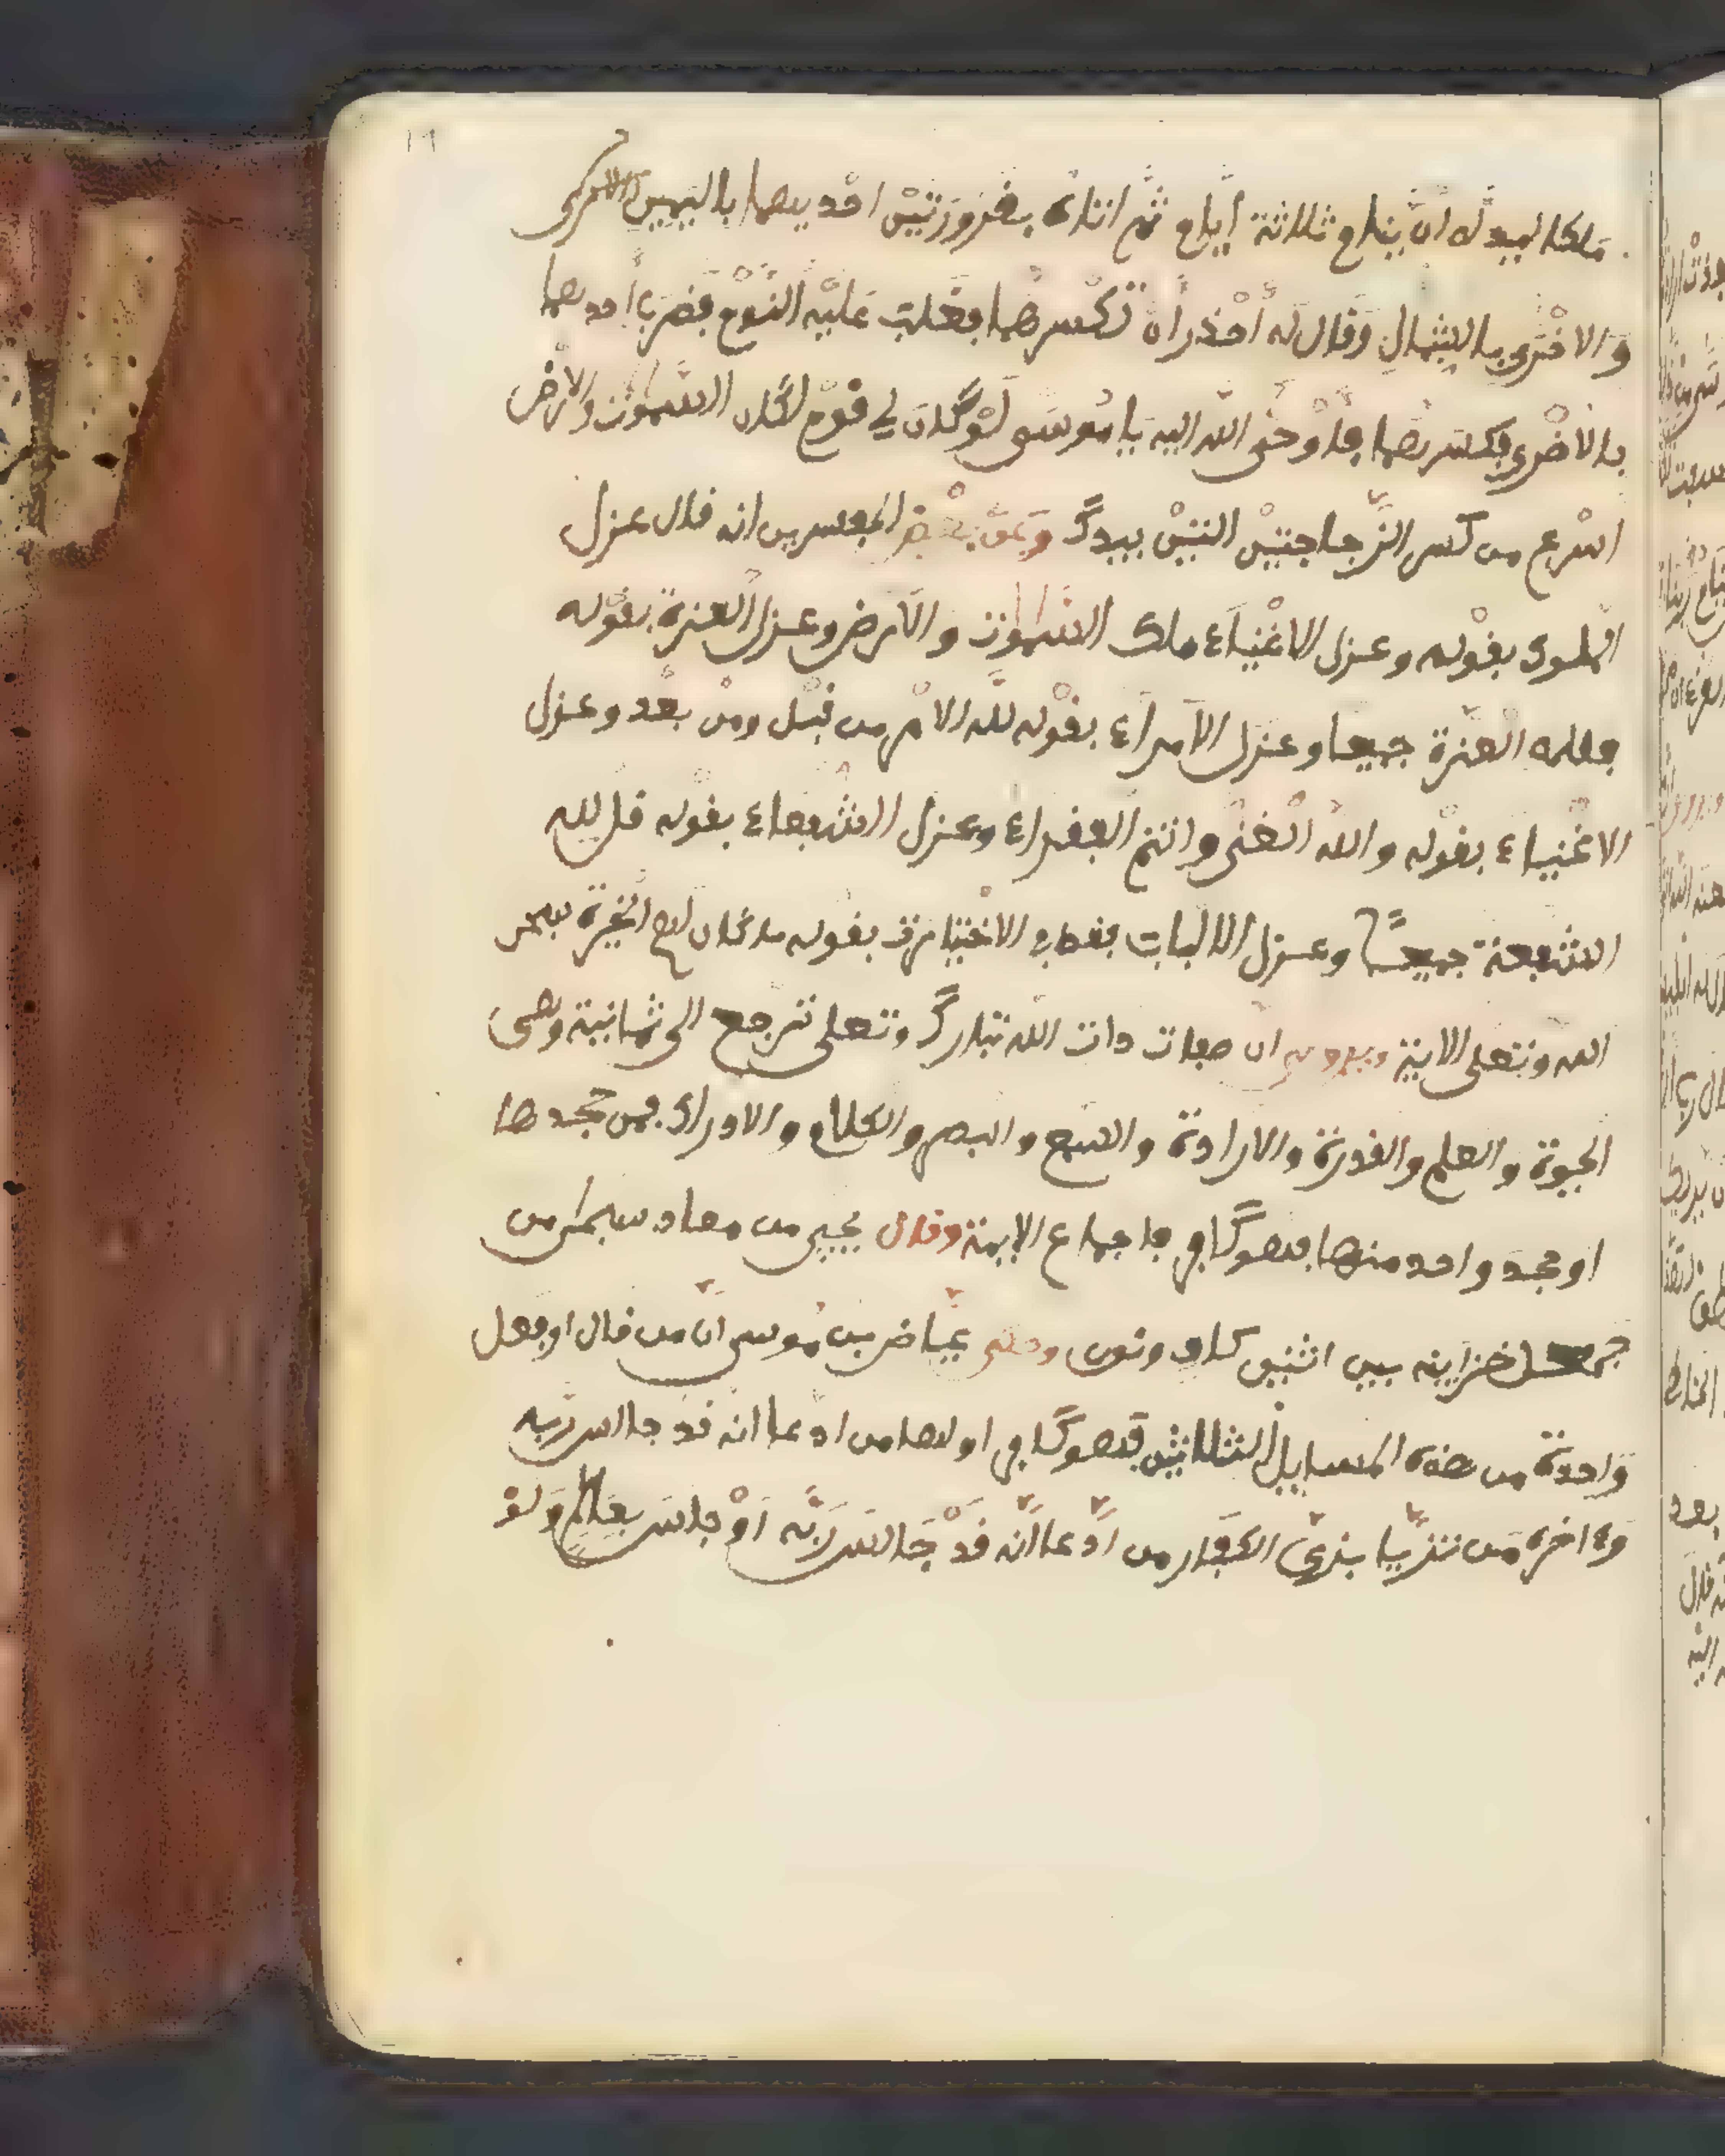 ملكا ليبد له ان ينام ثلاثة ايام ثم اتاه بفرورتين احديهما باليمين
والاخرى بالشمال وقال له احذر ان تكسرهما فغلب عليه النوم فضرب احديهما
بالاخرى فكسرهما فاوحى الله اليه يا موسى لو كان لي نوم لكان السموت والارض
اسرع من كسر الزجاجتين التين بيدك وعن بعض المفسرين انه قال عزل
الملوك بقوله وعزل الاغنياء ملك السموت والارض وعزل العزة بقوله
فلله العزة جميعا وعزل الامراء بقوله لله الامر من قبل ومن بعد وعزل
الاغنياء بقوله والله الغني وانتم الفقراء وعزل الشفعاء بقوله قل لله
الشفعة جميعا وعزل الالباب بقوله ما كان لهم الخيرة سبحن
الله وتعلى الاية ان صفات ذات الله تبارك وتعلى ترجع الى ثمانية وهي
الحيوة والعلم والقدرة والارادة والسمع والبصر والكلام والادراك فمن جحدها
او جحد واحد منها فهو كافر باجماع الايمة وقال يحيى من معاد سبحن من
جعل خزاينه بين اثنين كاف ونون عياض بن موسى ان من قال او فعل
واحدة من هذه المسايل الثلاثين فهو كافر اولها من ادعا انه قد جالس ربه
واخره من تزيا بزي الكفار من ادعا انه قد جالس ربه او جلس ولو